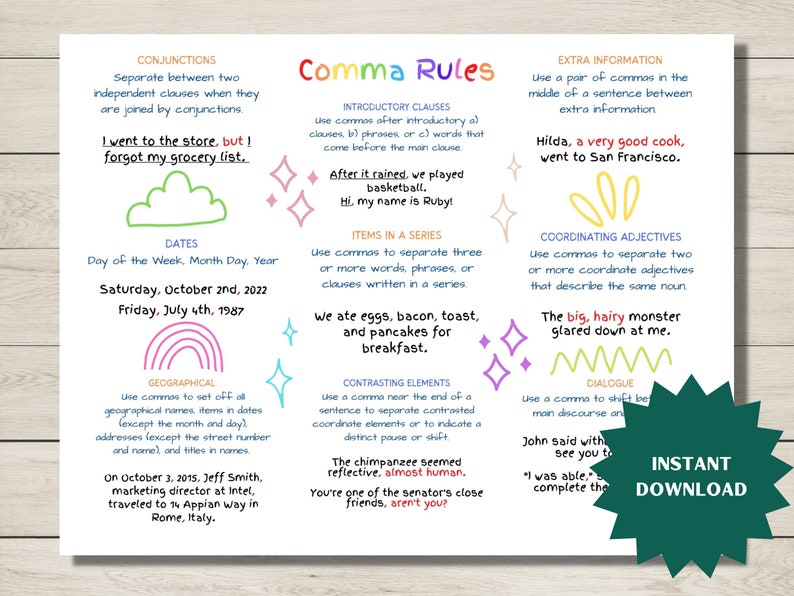 Comma Rules
CONJUNCTIONS
Separate between two
independent clauses when they
are joined by conjunctions.
I went to the store, but I
forgot my grocery list.
INTRODUCTORY CLAUSES
Use commas after introductory a)
clauses, b) phrases, or c) words that
come before the main clause.
After it rained, we played
basketball.
Hi, my name is Ruby!
EXTRA INFORMATION
Use a pair of commas in the
middle of a sentence between
extra information.
Hilda, a very good cook,
went to San Francisco.
DATES
Day of the Week, Month Day, Year
Saturday, October 2nd, 2022
Friday, July 4th, 1987
ITEMS IN A SERIES
Use commas to separate three
or more words, phrases, or
clauses written in a series.
We ate eggs, bacon, toast,
and pancakes for
breakfast.
COORDINATING ADJECTIVES
Use commas to separate two
or more coordinate adjectives
that describe the same noun.
The big, hairy monster
glared down at me.
GEOGRAPHICAL
Use commas to set off all
geographical names, items in dates
(except the month and day),
addresses (except the street number
and name), and titles in names.
On October 3, 2015, Jeff Smith,
marketing director at Intel,
traveled to 14 Appian Way in
Rome, Italy.
CONTRASTING ELEMENTS
Use a comma near the end of a
sentence to separate contrasted
coordinate elements or to indicate a
distinct pause or shift.
The chimpanzee seemed
reflective, almost human.
You're one of the senator's close
friends, aren't you?
DIALOGUE
Use a comma to shift
main discourse
John said
see you
"I was able,"
complete
INSTANT
DOWNLOAD